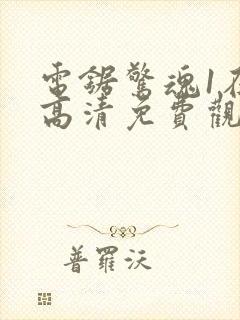 電鋸驚魂1在
高清免費觀
普羅沃